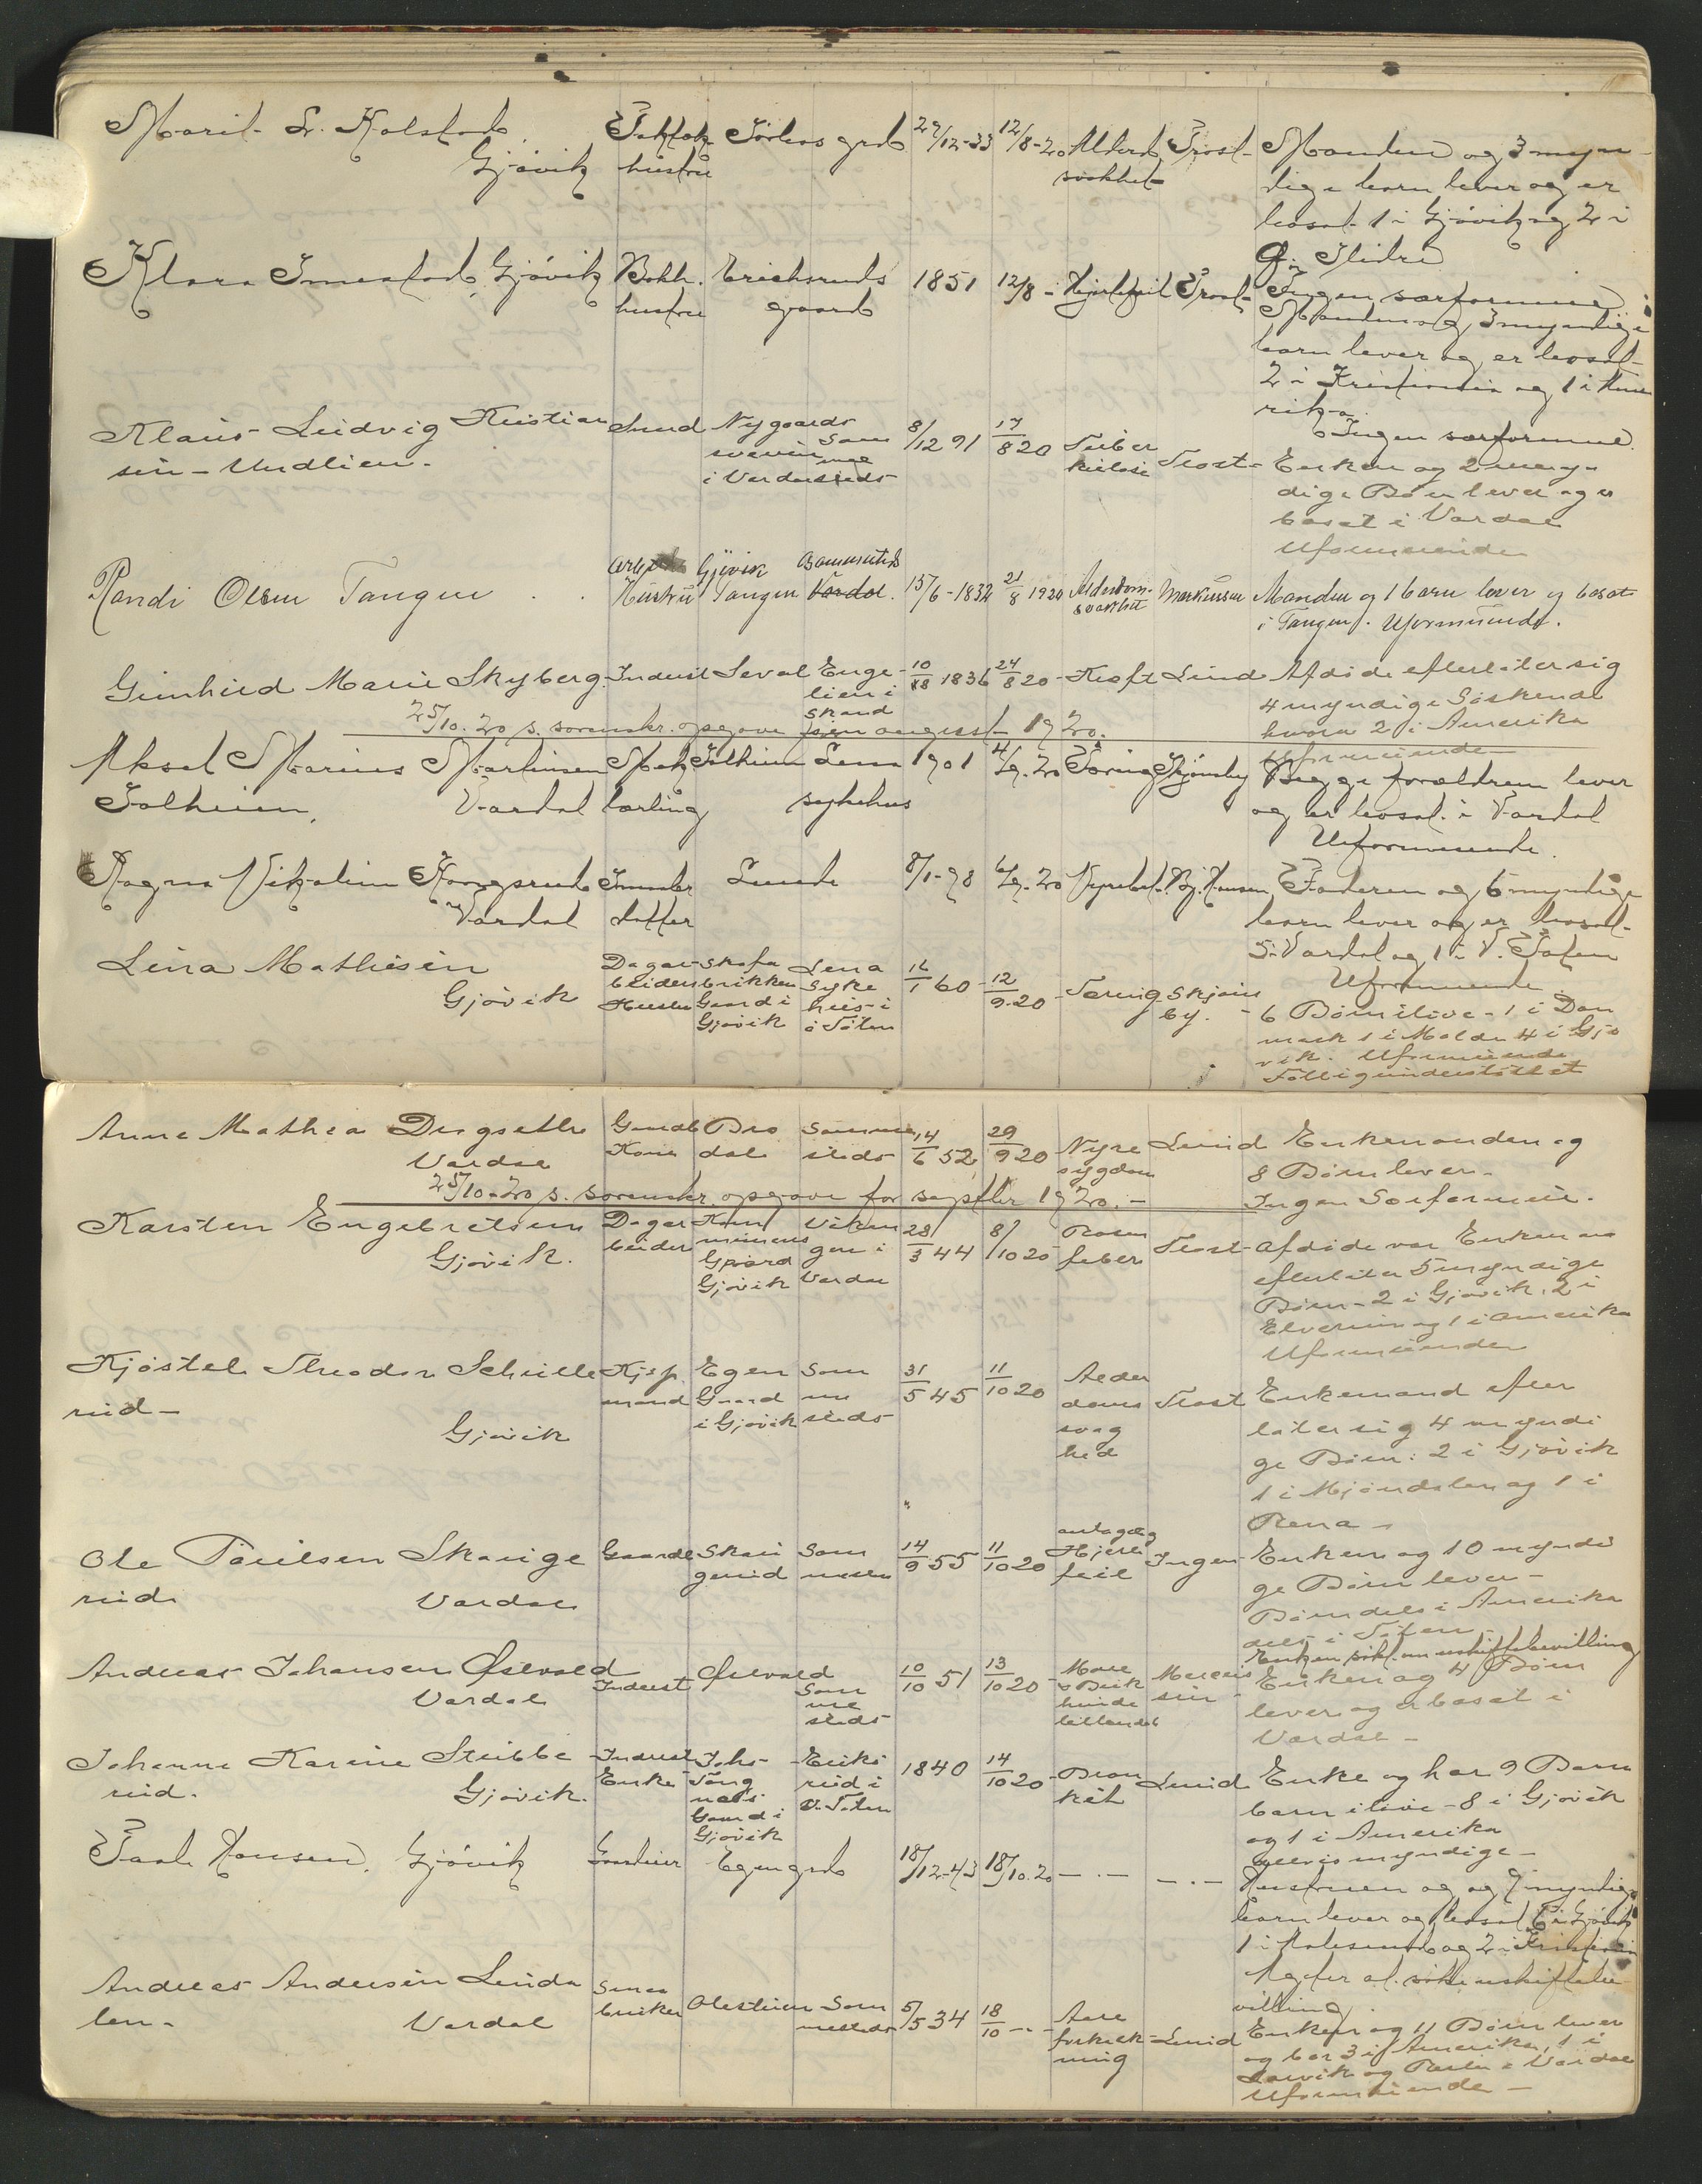 Marit L. Kolstad
Gjøvik
hustru
Sörlies grd
29/12-33
12/8-20
Alderd.
svakhet
Trost
Manden og 3 myn-
dige barn lever og er
bosat 1 i Gjøvik og 2 i
Ø. Slidre
Ingen særformue
Klara Smestad, Gjøvik
Bokh.
hustru
Erichsruds
gaard
1851
12/8 -
Hjertefeil
Trost
Manden og 3 myndige
barn lever og er bosat
2 i Kristiania og 1 i Ame
rika.
Ingen særformue.
Klaus Ludvig Kristian
sen - Undlien.
Smed
Nygaards
sveen
i Vardal
Sam
me
steds
8/12 91
17/8 20
Tuber
kulose
Trost
Enken og 2 myn-
dige Børn lever og er
bosat i Vardal
Uformuende
Randi Olsen Tangen
Hustru
Gjøvik
Tangen
Sammesteds
Vardal.
15/6-1832
21/8 1920
Alderdom.
svakhet
Markussen
Manden og 1 barn lever og bosat
i Tangen. Uformuende.
Gunhild Marie Skyberg.
Inderst
Enge
lien i
10/18 1836
24/8 20
Kreft
Lund
Afdøde efterlater sig
4 myndige Søskende
hvoraf 2 i Amerika
Uformuende
25/10.20 s. sorenskr. opgave for august 1920.
Aksel Marius Martinsen
Solheim, Vardal
Mek
lærling
Solheim
Lena
sykehus
1901
4/9.20
Tæring
Skjønsby
Begge forældrene lever
og er bosat i Vardal
Uformuende.
Ragna Nikoline Kongsrud
Vardal
datter
Lunde
8/1-98
6/9.20
Nyrebet.
Bj. Hansen
Faderen og 6 myndige
barn lever og er bosat
5 i Vardal og 1 i V. Toten
Uformuende
Lina Mathisen
Gjøvik
Dagar
beiders
Hustru
Skofa
brikken
Gaard i
Gjøvik
Lena
Syke
hus i
ö Toten
16/1 60
12/9-20
Tæring
Skjøns
by.
6 Børn ilive - 1 i Dan
mark 1 i Molde 4 i Gjø
vik. Uformuende
Fattigunderstøttet
Anne Mathea Dregsethr
Vardal
Gaardb
Kone
Bro
dal
Samme
steds
14/6 52
29/9 20
Nyre
sygdom
Lund
Enkemanden og
8 Børn lever.
Ingen Særformue.
25/10-20 s. sorenskr. opgave for septbr 1920. -
Karsten Engebretsen
Gjøvik.
Dagar
beider
Kom
munens
Gaard
Gjøvik
Viken
gen i
Vardal
28/3 44
8/10 20
Rosen
feber
Trost
Afdøde var Enkema
efterlater 5 myndige
Børn - 2 i Gjøvik, 2 i
Elverum og 1 i Amerika
Uformuende
Kjöstel Theodor Schulle
rud -
Gjøvik
Kjøp
mand
Egen
Gaard
i Gjøvik
Sam
me
steds
31/5 45
11/10 20
Alder
doms
svag
hed
Trost
Enkemand efter
later sig 4 myndi
ge Børn: 2 i Gjøvik
1 i Mjøndalen og 1 i
Rena -
Ole Paulsen Skauge
rud
Vardal
Gaardb
Skau
gerud
Sam
mesteds
14/9 55
11/10 20
antagelig
Hjerte
feil
Ingen
Enken og 10 myndi
ge Børn lever -
Børn dels i Amerika
dels i Toten -
Enken søkt om uskiftebevilling
Andreas Johansen Ødevold
Vardal
Inderst
Ødevold
Sam
me
steds
10/10 51
13/10 20
Mave
& Buk
hinde
betændels
Marcus
sen
Enken og 4 Børn
lever og er bosat i
Vardal -
Johanne Karine Stubbe
rud.
Gjøvik.
Inderst
Enke
Johs
Gaard i
Gjøvik
Eriks
rud i
V. Toten
1840
14/10 20
Bron
kit
Lund
Enke og har 9 Børn
barn ilive - 8 i Gjøvik
og 1 i Amerika
alle er myndige -
Paul Hansen, Gjøvik
Gaardeier
Egen grd
18/12-43
18/10.20
- . -
- . -
Hustruen og og 9 myndige
barn lever og bosat 6 i Gjøvik
1 i Aalesund og 2 i Kristiania
Agter at søke uskiftebe-
villing.
Andreas Andersen Linda
len -
Vardal
Smaa
bruker
Sam
mesteds
5/5 34
18/10 -
Aare
forkalk
ning
Lund
Enken og 11 Børn lever
og bor 3 i Amerika, 1 i
Larvik og Resten i Vardal
Uformuende -